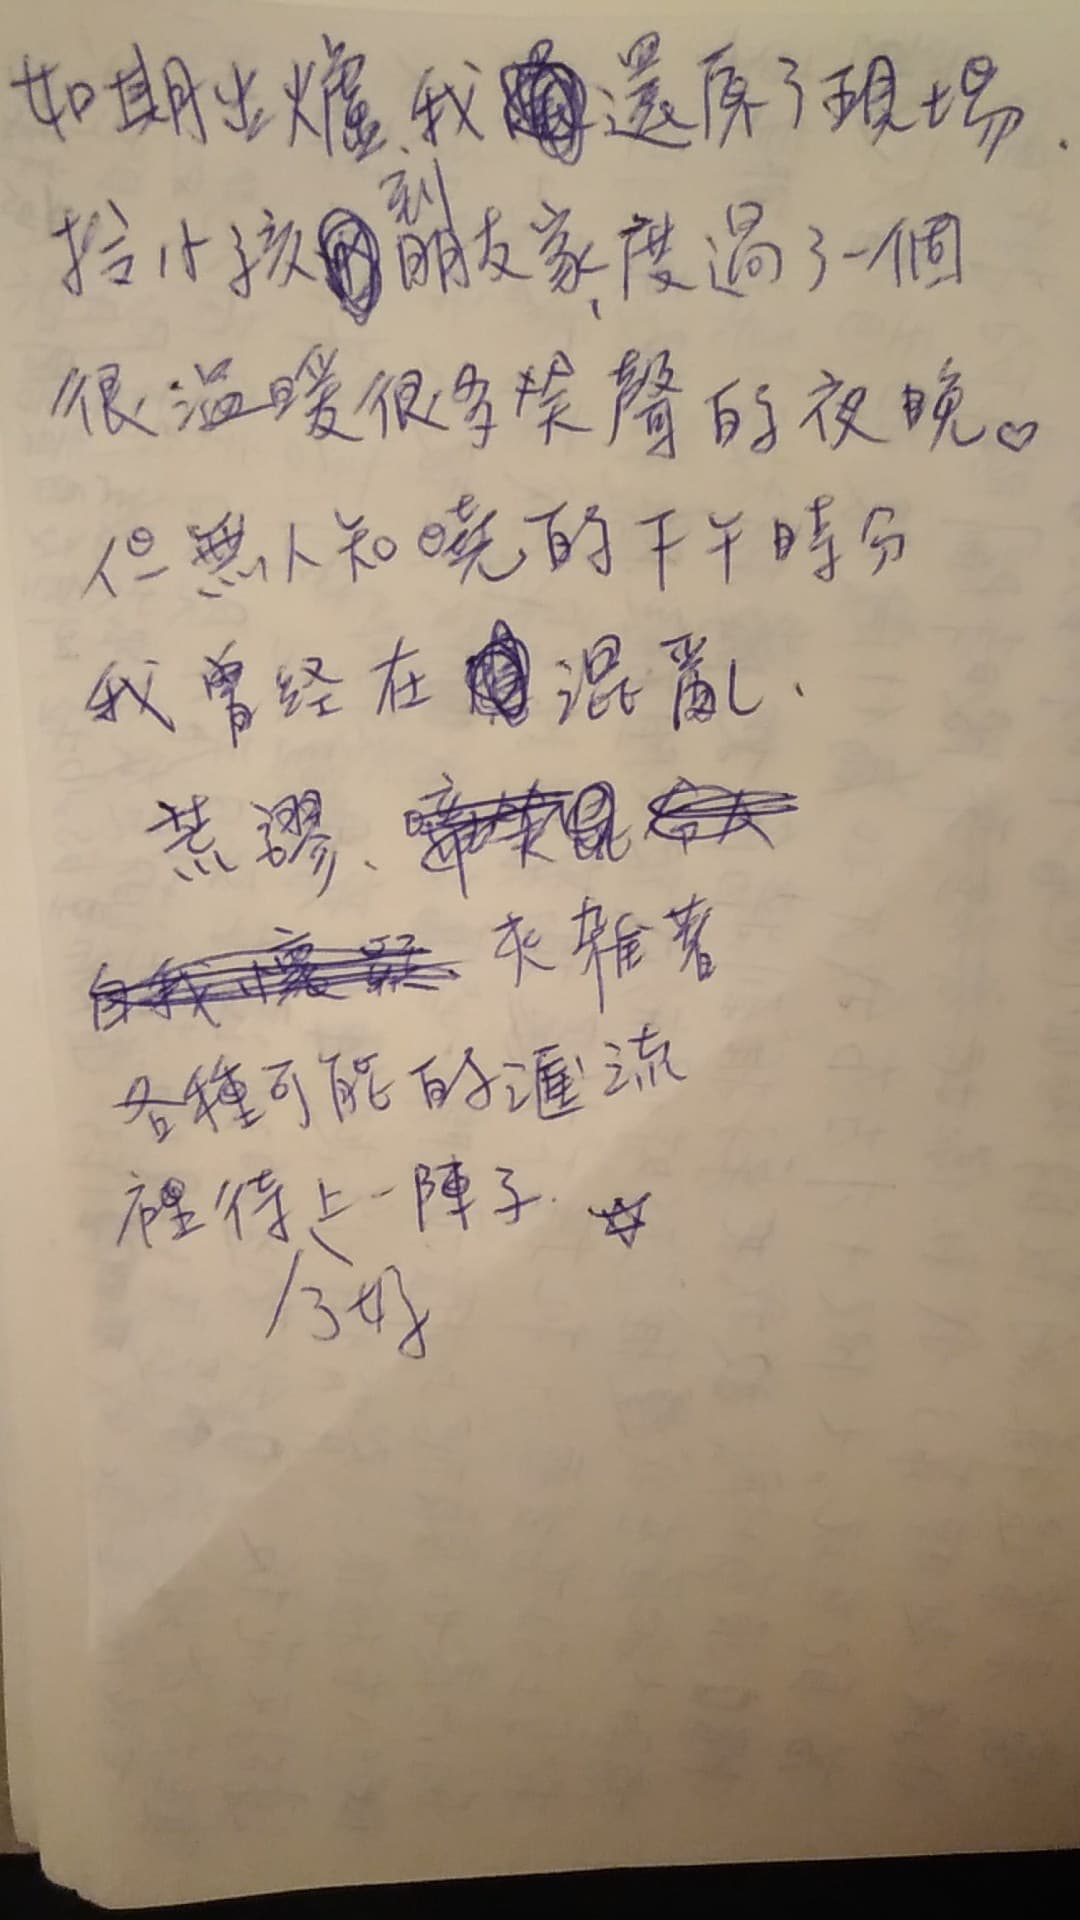 如期出爐、我還原了現場.
拾小孩到朋友家、度過了一個
很溫暖很多笑聲的夜晚。♡
但無人知曉的下午時分
我曾经在混亂、
荒謬、
夾雜著
各種可能的匯流
裡待上一陣子. ☆
了好